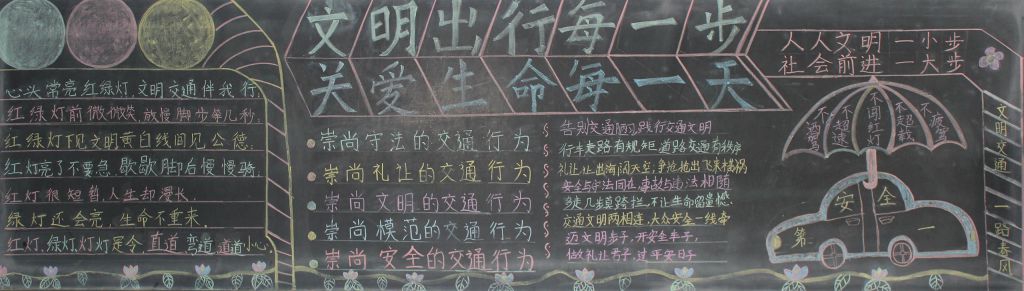 文明出行每一步
关爱生命每一天
心头常亮红绿灯,文明交通伴我行
红绿灯前微微笑,放慢脚步等几秒,
红绿灯下见文明黄白线间见公德,
红灯亮了不要急,歇歇脚后慢慢骑,
红灯很短暂,人生却漫长,
绿灯还会亮,生命不重来
红灯,绿灯,灯灯
直道 弯道 道道小心
崇尚守法的交通行为
崇尚礼让的交通行为
崇尚文明的交通行为
崇尚模范的交通行为
崇尚安全的交通行为
告别交通陋习,践行交通文明
行车走路有规矩,道路交通有秩序
礼让,让出海阔天空,争抢,抢出飞来横祸
安全与守法同在,事故与违法相随
多走几步莫跨栏,不让生命留遗憾
交通文明两相连,大众安全一线牵
迈文明步子,开安全车子,
做礼让君子,过平安日子
人人文明一小步
社会前进一大步
不超速
不闯红灯
不超载
不疲驾
安全
第一
文明交通 一路春风